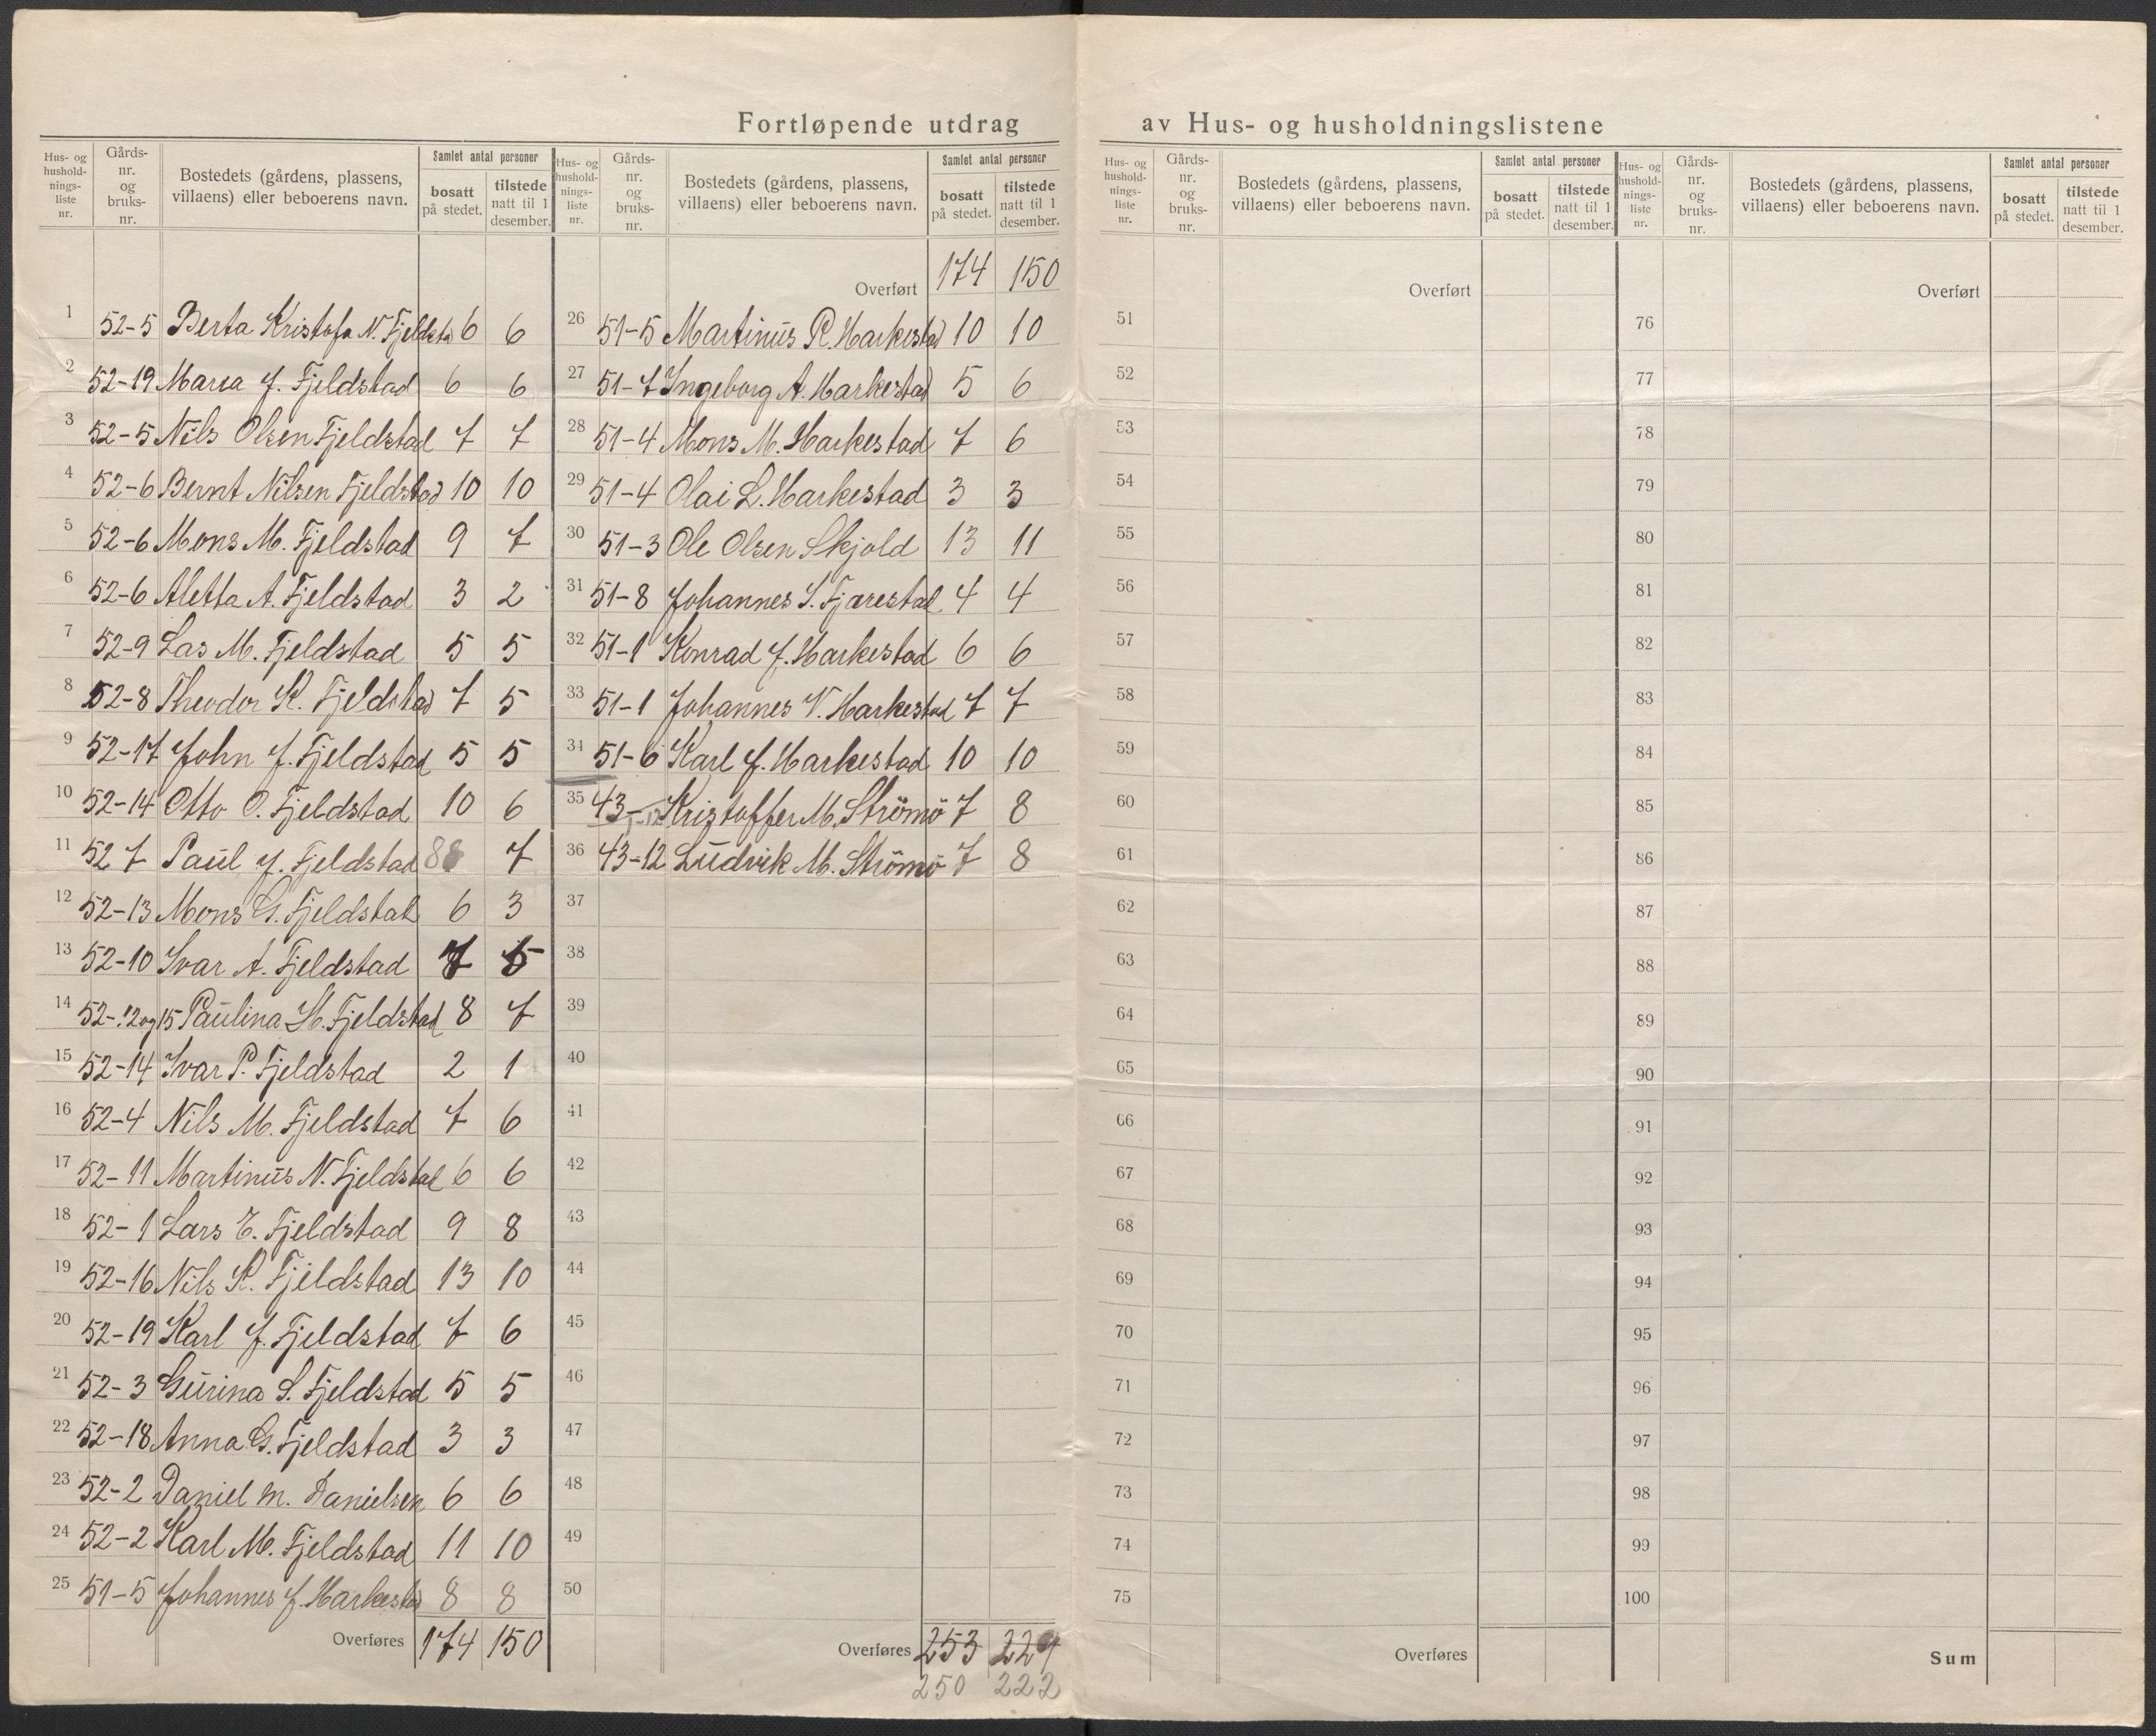 Fortløpende utdrag av Hus- og husholdningslistene
Hus- og hushold-nings-liste nr.
Gårds-nr. og bruks-nr.
Bostedets (gårdens, plassens, villaens) eller beboerens navn.
Samlet antal personer
bosatt på stedet.
tilstede natt til 1 desember.
1 52-5 Berta Kristofa N. Fjeldsta 6 6
2 52-19 Maria J. Fjeldstad 6 6
3 52-5 Nils Olsen Fjeldstad 7 7
4 52-6 Bernt Nilsen Fjeldstad 10 10
5 52-6 Mons M. Fjeldstad 9 7
6 52-6 Aletta A. Fjeldstad 3 2
7 52-9 Las M. Fjeldstad 5 5
8 52-8 Theodor K. Fjeldstad 7 5
9 52-17 John J. Fjeldstad 5 5
10 52-14 Otto O. Fjeldstad 10 6
11 52 7 Paul J. Fjeldstad 8 7
12 52-13 Mons G. Fjeldstad 6 3
13 52-10 Ivar A. Fjeldstad 7 5
14 52-12 og 15 Paulina H. Fjeldstad 8 7
15 52-14 Ivar P. Fjeldstad 2 1
16 52-4 Nils M. Fjeldstad 7 6
17 52-11 Martinus N. Fjeldstad 6 6
18 52-1 Lars E. Fjeldstad 9 8
19 52-16 Nils K. Fjeldstad 13 10
20 52-19 Karl J. Fjeldstad 7 6
21 52-3 Gurina S. Fjeldstad 5 5
22 52-18 Anna G. Fjeldstad 3 3
23 52-2 Daniel M. Danielsen 6 6
24 52-2 Karl M. Fjeldstad 11 10
25 51-5 Johannes J. Harkestad 8 8
Overføres 174 150
Hus- og hushold-nings-liste nr.
Gårds-nr. og bruks-nr.
Bostedets (gårdens, plassens, villaens) eller beboerens navn.
Samlet antal personer
bosatt på stedet.
tilstede natt til 1 desember.
Overført 174 150
26 51-5 Martinus R. Harkestad 10 10
27 51-7 Ingeborg A. Harkestad 5 6
28 51-4 Mons M. Harkestad 7 6
29 51-4 Olai L. Harkestad 3 3
30 51-3 Ole Olsen Skjold 13 11
31 51-8 Johannes S. Fjærestad 4 4
32 51-1 Konrad J. Harkestad 6 6
33 51-1 Johannes V. Harkestad 7 7
34 51-6 Karl J. Harkestad 10 10
35 43- Kristoffer M. Strömö 7 8
36 43-12 Ludvik M. Strömö 7 8
37
38
39
40
41
42
43
44
45
46
47
48
49
50
Overføres 253 229
250 222
Hus- og hushold-nings-liste nr.
Gårds-nr. og bruks-nr.
Bostedets (gårdens, plassens, villaens) eller beboerens navn.
Samlet antal personer
bosatt på stedet.
tilstede natt til 1 desember.
Overført
51
52
53
54
55
56
57
58
59
60
61
62
63
64
65
66
67
68
69
70
71
72
73
74
75
Overføres
Hus- og hushold-nings-liste nr.
Gårds-nr. og bruks-nr.
Bostedets (gårdens, plassens, villaens) eller beboerens navn.
Samlet antal personer
bosatt på stedet.
tilstede natt til 1 desember.
Overført
76
77
78
79
80
81
82
83
84
85
86
87
88
89
90
91
92
93
94
95
96
97
98
99
100
Sum